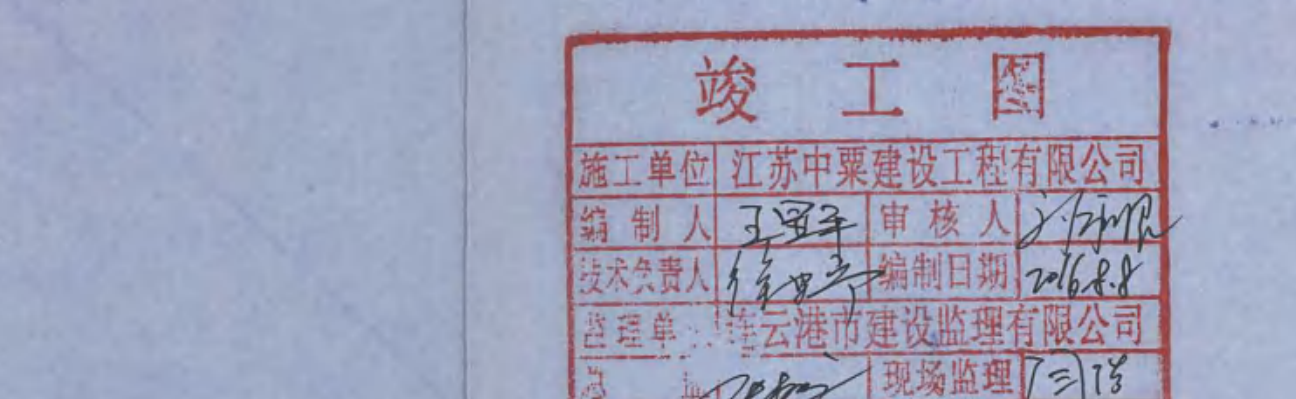 竣工图
施工单位 江苏中粟建设工程有限公司
编制人 审核人
技术负责人 编制日期 2016.8.8
监理单 连云港市建设监理有限公司
总 现场监理